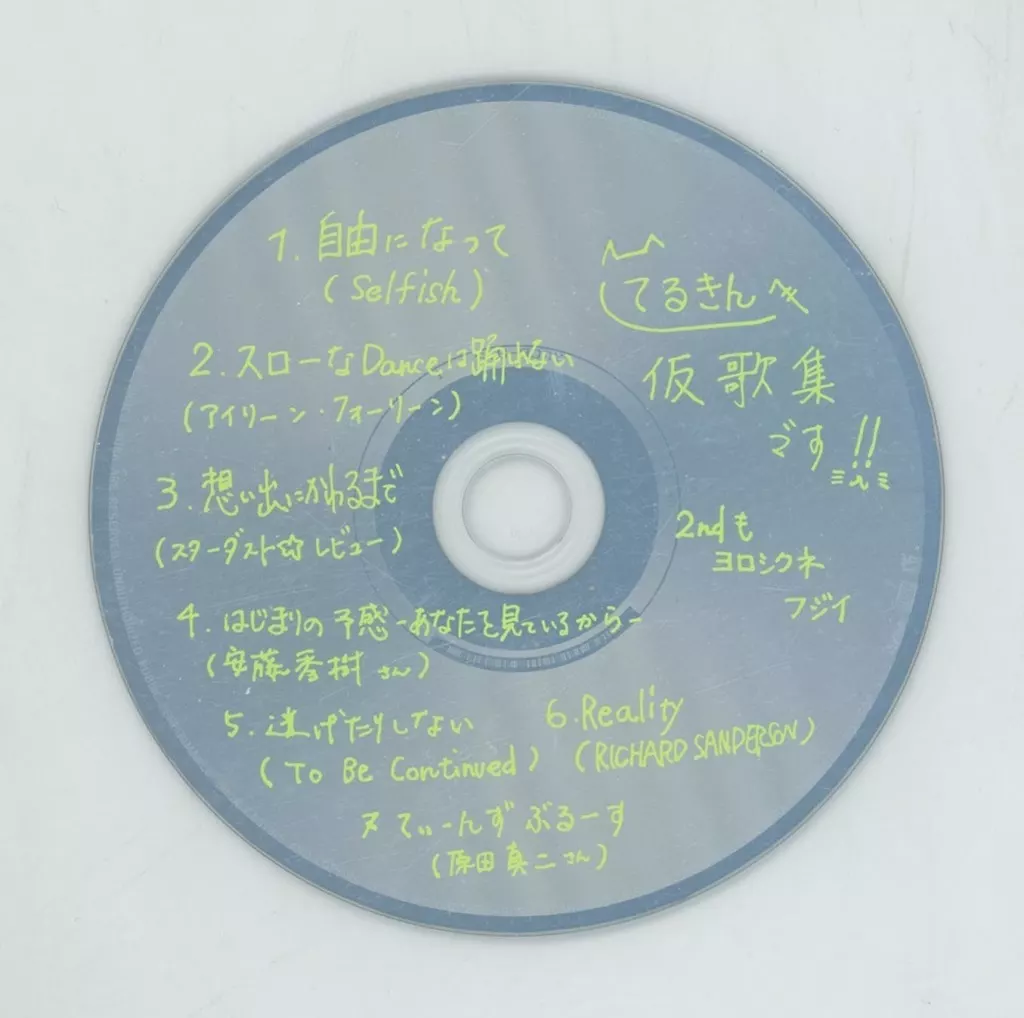 1. 自由になって
(Selfish)
2. スローなDanceは踊れない
(アイリーン・フォーリーン)
3. 想い出にかわるまで
(スターダスト☆レビュー)
4. はじまりの予感-あなたを見ているから-
(安藤秀樹さん)
5. 逃げたりしない
(To Be Continued)
6. Reality
(RICHARD SANDERSON)
7 てぃーんずぶるーす
(原田真二さん)
てるきん
仮歌集
です!!
2ndも
ヨロシクネ
フジイ